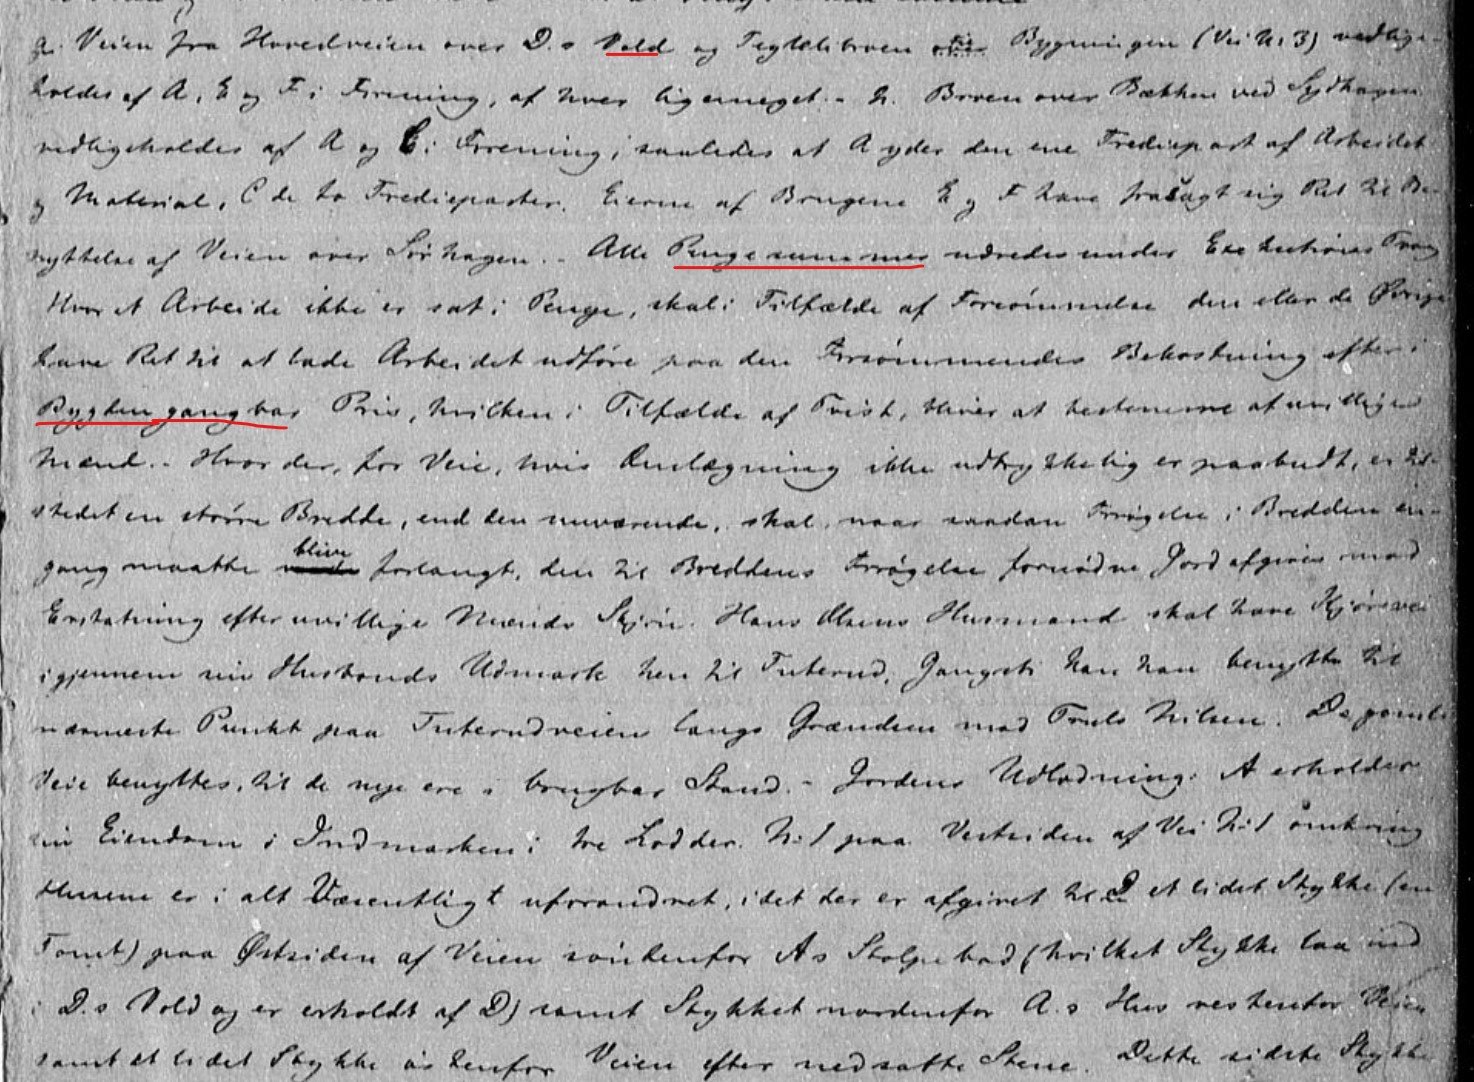 g. Veien fra Hovedveien over D.s Vold og Teglebroen Bygningen (Vei N: 3) vedlige-
holdes af A, E og F i Forening, af hver ligemeget. - h. Broen over Bækken ved Sydhagen
vedligeholdes af A og C i Forening, saaledes at A yder den ene Trediepart af Arbeidet
og Material, C de to Tredieparter. Eierne af Brugene E og F have frasagt sig Ret til Be-
nyttelse af Veien over Sørhagen. - Alle Pengesummer udredes under Executions Tvang
Hvor et Arbeide ikke er sat i Penge, skal i Tilfælde af Forsømmelse den eller de Øvrige
have Ret til at lade Arbeidet udføre paa den Forsømmendes Bekostning efter i
Bygden gangbar Pris, hvilken i Tilfælde af Tvist, bliver at bestemme af uvillige
Mænd. - Hvor der, for Veie, hvis Omlægning ikke udtrykkelig er paabudt, er til-
stedet en større Bredde, end den nuværende, skal, naar saadan Forøgelse i Bredden en-
gang maatte blive forlangt, den til Breddens Forøgelse fornødne Jord afgives mod
Erstatning efter uvillige Mænds Skjøn. Hans Olsens Husmand skal have Kjørevei
igjennem sin Husbonds Udmark hen til Tuterud, Gangsti kan han benytte til
nærmeste Punkt paa Tuterudveien langs Grændsen mod Truls Nilsen. De gamle
Veie benyttes, til de nye ere i brugbar Stand. - Jordens Udlodning: A erholder
sin Eiendom i Indmarken i tre Lodder. N: 1 paa Vestsiden af Vei N: 1 omkring
Husene er i alt Væsentligt uforandret, idet der er afgivet til D et lidet Stykke (en
Tomt) paa Østsiden af Veien søndenfor A.s Stolpebod (hvilket Stykke laa ind
i D.s Vold og er erholdt af D) samt Stykket nordenfor A.s Hus vestenfor Veien
samt et lidet Stykke østenfor Veien efter nedsatte Stene. Dette sidste Stykke